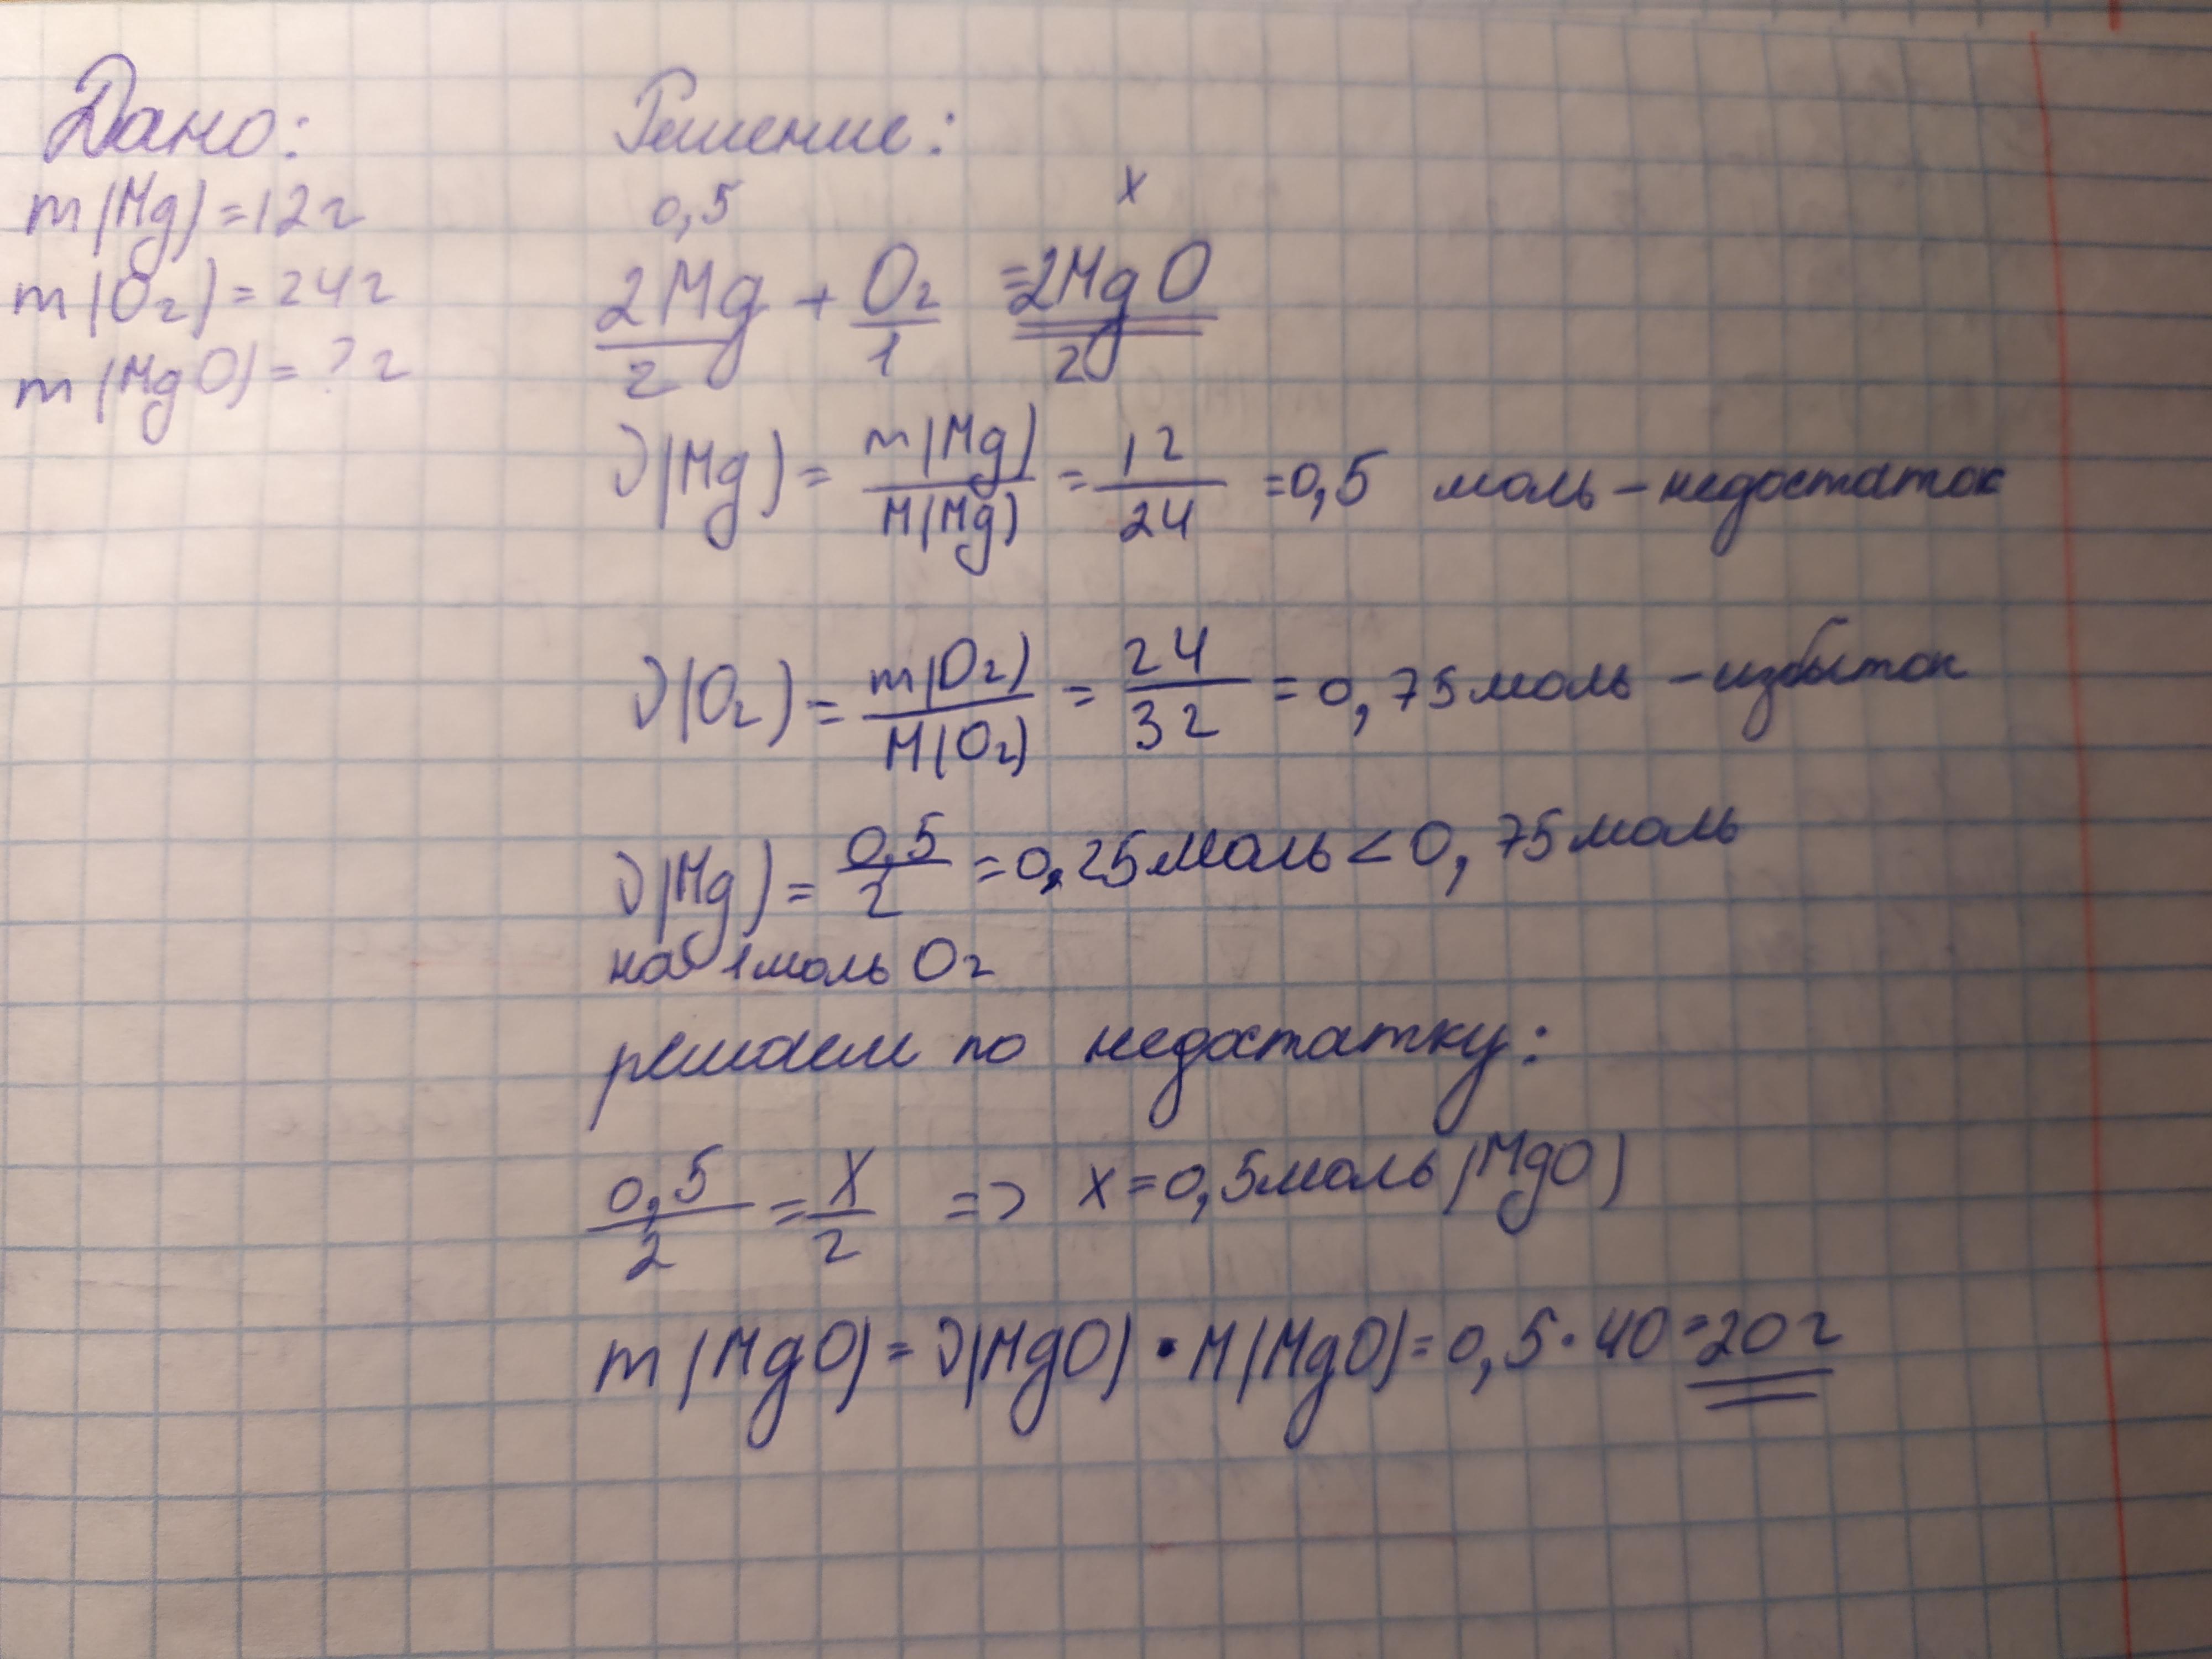 Дано:
m(Mg)=12г
m(O2)=24г
m(MgO)=?г
Решение:
0,5 x
2Mg + O2 =2MgO
2 1 2
ν(Mg) = m(Mg)/M(Mg) = 12/24 =0,5 моль – недостаток
ν(O2) = m(O2)/M(O2) = 24/32 = 0,75 моль – избыток
ν(Mg) = 0,5/2 = 0,25 моль < 0,75 моль
на 1 моль O2
решаем по недостатку:
0,5/2 = x/2 => x=0,5 моль (MgO)
m(MgO) = ν(MgO) · M(MgO) = 0,5 · 40 = 20 г